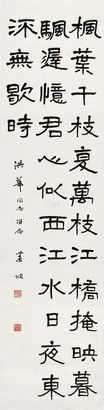 楓葉千枝复萬枝江橋掩映暮
颿遲憶君心似西江水日夜東
流無歇時
華同志
蕭嫻